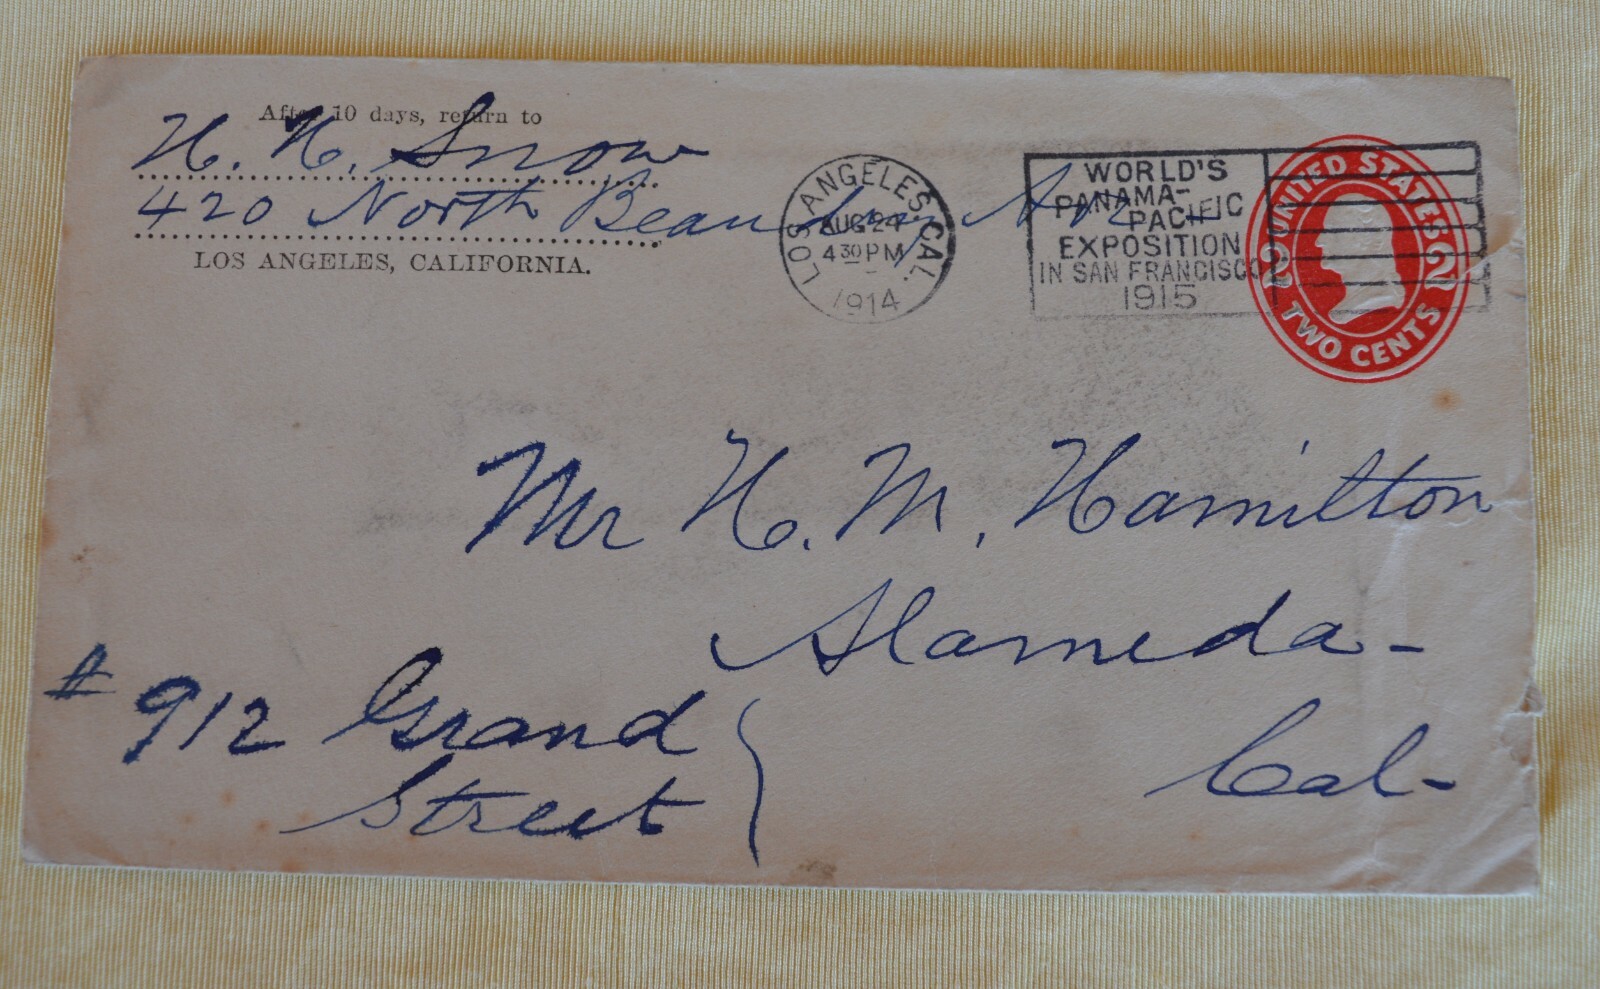 After 10 days, return to
H. H. Snow
420 North Beaudry Ave
LOS ANGELES, CALIFORNIA.
LOS ANGELES, CAL.
AUG 24
4 30 PM
1914
WORLD'S
PANAMA-
PACIFIC
EXPOSITION
IN SAN FRANCISCO
1915
UNITED STATES
2 2
TWO CENTS
Mr H. M. Hamilton
Alameda-
# 912 Grand
Street
Cal-